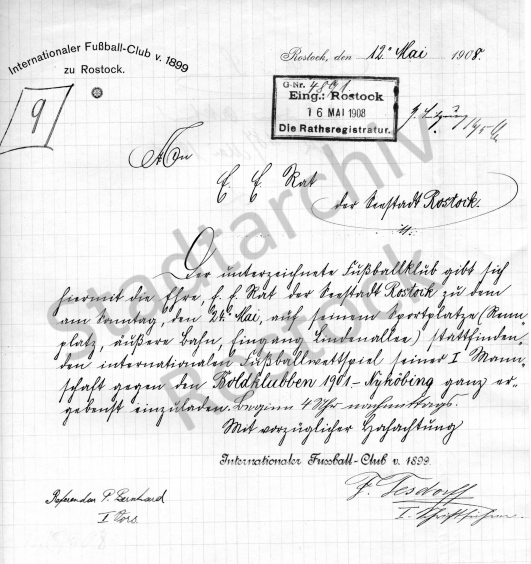 Internationaler Fußball-Club v. 1899
zu Rostock.
Rostock, den 12. Mai 1908.
9
G-Nr. 4801.
Eing.: Rostock
16 MAI 1908
Die Rathsregistratur.
An
E. E. Rat
der Seestadt Rostock.
Der unterzeichnete Fußballklub gibt sich
hiermit die Ehre, E. E. Rat der Seestadt Rostock zu dem
am Sonntag, den 24. Mai, auf seinem Sportplatze (Renn
platz, äußere Bahn, Eingang Lindenallee) stattfinden,
den internationalen Fußballwettspiel seiner I Mann-
schaft gegen den Boldklubben 1901 - Nyköbing ganz er-
gebenst einzuladen. Beginn 4 Uhr nachmittags.
Mit vorzüglicher Hochachtung
Internationaler Fussball-Club v. 1899.
Referendar P. Bernhard
I Vors.
F. Tesdorff
I. Schriftführer.
Stadtarchiv
Rostock